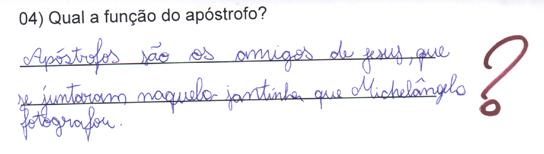 04) Qual a função do apóstrofo?
Apóstrofos são os amigos de jesus, que
se juntaram naquela jantinha que Michelângelo
fotografou.
?